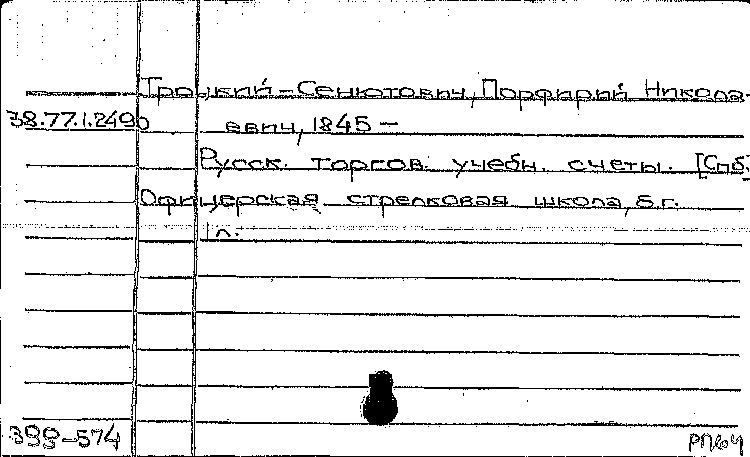 Троцкий-Сенютович, Порфирий Никола-
38.77.1.249о евич, 1845 –
Русск. торгов. учебн. счеты. [Спб.]
Офицерская стрелковая школа, б.г.
1 л.
399-574